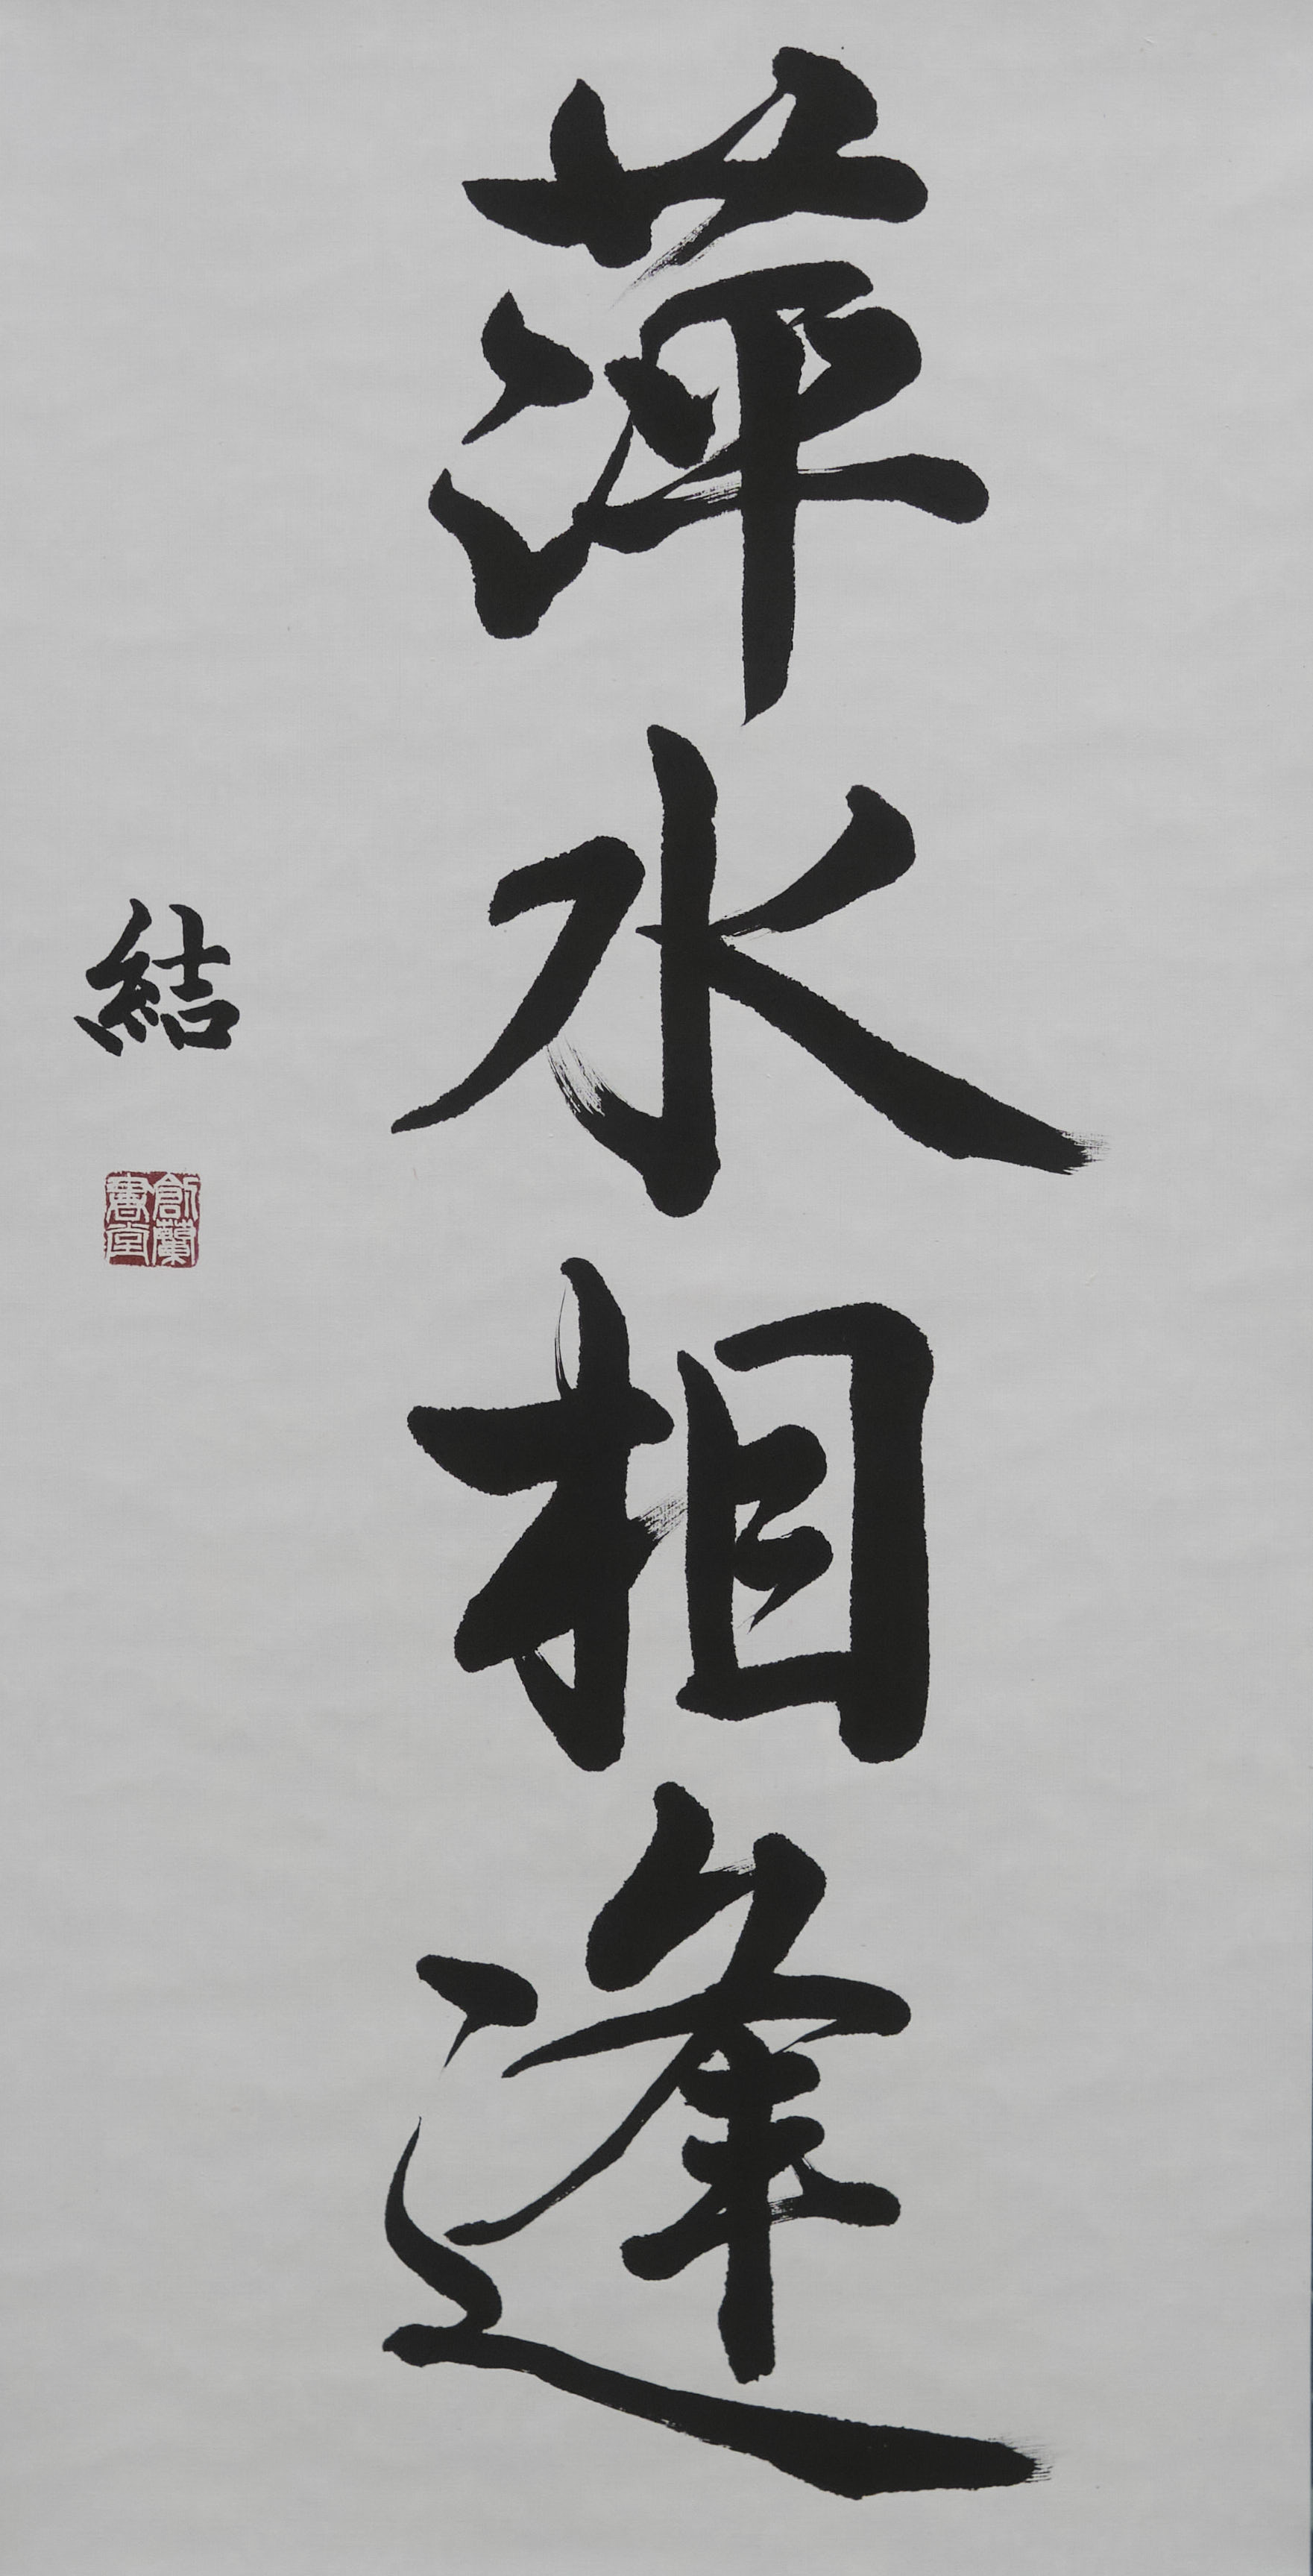 萍水相逢
結
創蘭書堂